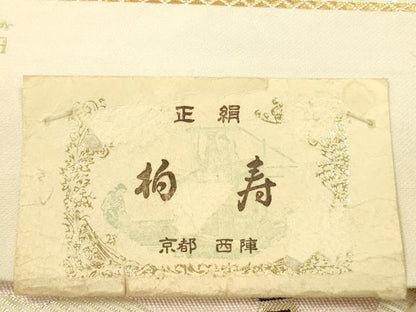 正絹
柏寿
京都 西陣